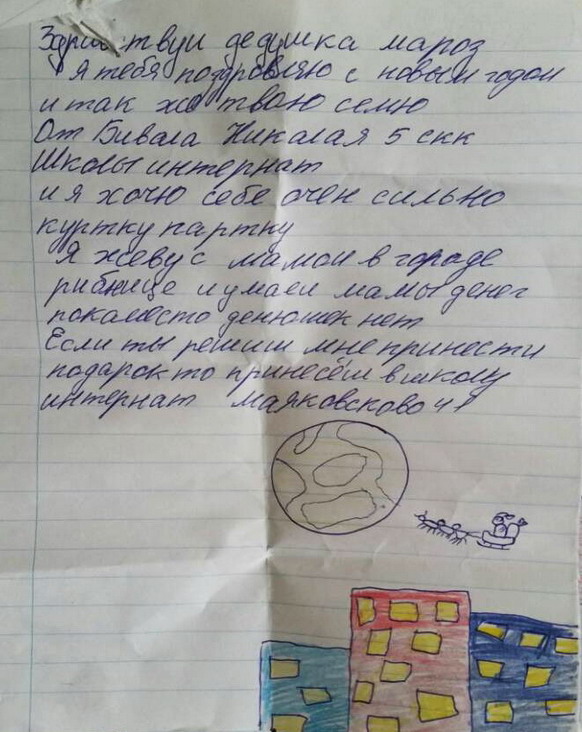 Здравствуи дедушка мароз
я тебя поздровляю с новым годом
и так жо твою семю
От Бивала Николая 5 скк
Школы интернат
и я хочю себе очен сильно
куртку партку
Я жеву с мамои в городе
рибнице и умаеи мамы денег
покаместо денюшок нет
Если ты решиш мне принести
подарок то принесёш в школу
интернат маяковсково 41